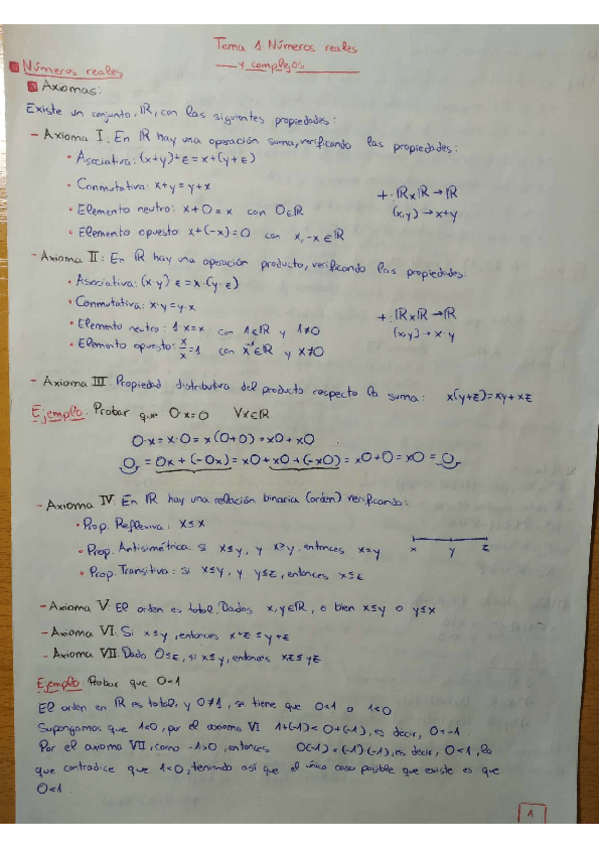 Tema 1. Números reales
y complejos
Números reales
Axiomas:
Existe un conjunto, ℝ, con las siguientes propiedades:
- Axioma I: En ℝ hay una operación suma, verificando las propiedades:
• Asociativa: (x+y)+z = x+(y+z)
• Conmutativa: x+y = y+x
+: ℝxℝ → ℝ
• Elemento neutro: x+0 = x con 0∈ℝ
(x,y) → x+y
• Elemento opuesto x+(-x)=0 con x,-x∈ℝ
- Axioma II: En ℝ hay una operación producto, verificando las propiedades:
• Asociativa: (x·y)·z = x·(y·z)
• Conmutativa: x·y = y·x
+: ℝxℝ → ℝ
• Elemento neutro: 1·x=x con 1∈ℝ y 1≠0
(x,y) → x·y
• Elemento opuesto: x/x = 1 con x⁻¹∈ℝ y x≠0
- Axioma III Propiedad distributiva del producto respecto la suma: x(y+z)=xy+xz
Ejemplo: Probar que 0·x=0 ∀x∈ℝ
0·x = x·0 = x(0+0) = x0+x0
0 = 0x+(-0x) = x0+x0+(-x0) = x0+0 = x0 = 0
- Axioma IV: En ℝ hay una relación binaria (orden) verificando:
• Prop. Reflexiva: x≤x
• Prop. Antisimétrica: si x≤y, y x≥y, entonces x=y
x y z
• Prop. Transitiva: si x≤y, y y≤z, entonces x≤z
- Axioma V: El orden es total. Dados x,y∈ℝ, o bien x≤y o y≤x
- Axioma VI: Si x≤y, entonces x+z ≤ y+z
- Axioma VII: Dado 0≤z, si x≤y, entonces xz≤yz
Ejemplo: Probar que 0<1
El orden en ℝ es total, y 0≠1, se tiene que 0<1 o 1<0
Supongamos que 1<0, por el axioma VI 1+(-1)<0+(-1), es decir, 0<-1.
Por el axioma VII, como -1>0, entonces 0(-1)<(-1)(-1), es decir, 0<1, lo
que contradice que 1<0, teniendo así que el único caso posible que existe es que
0<1.
1